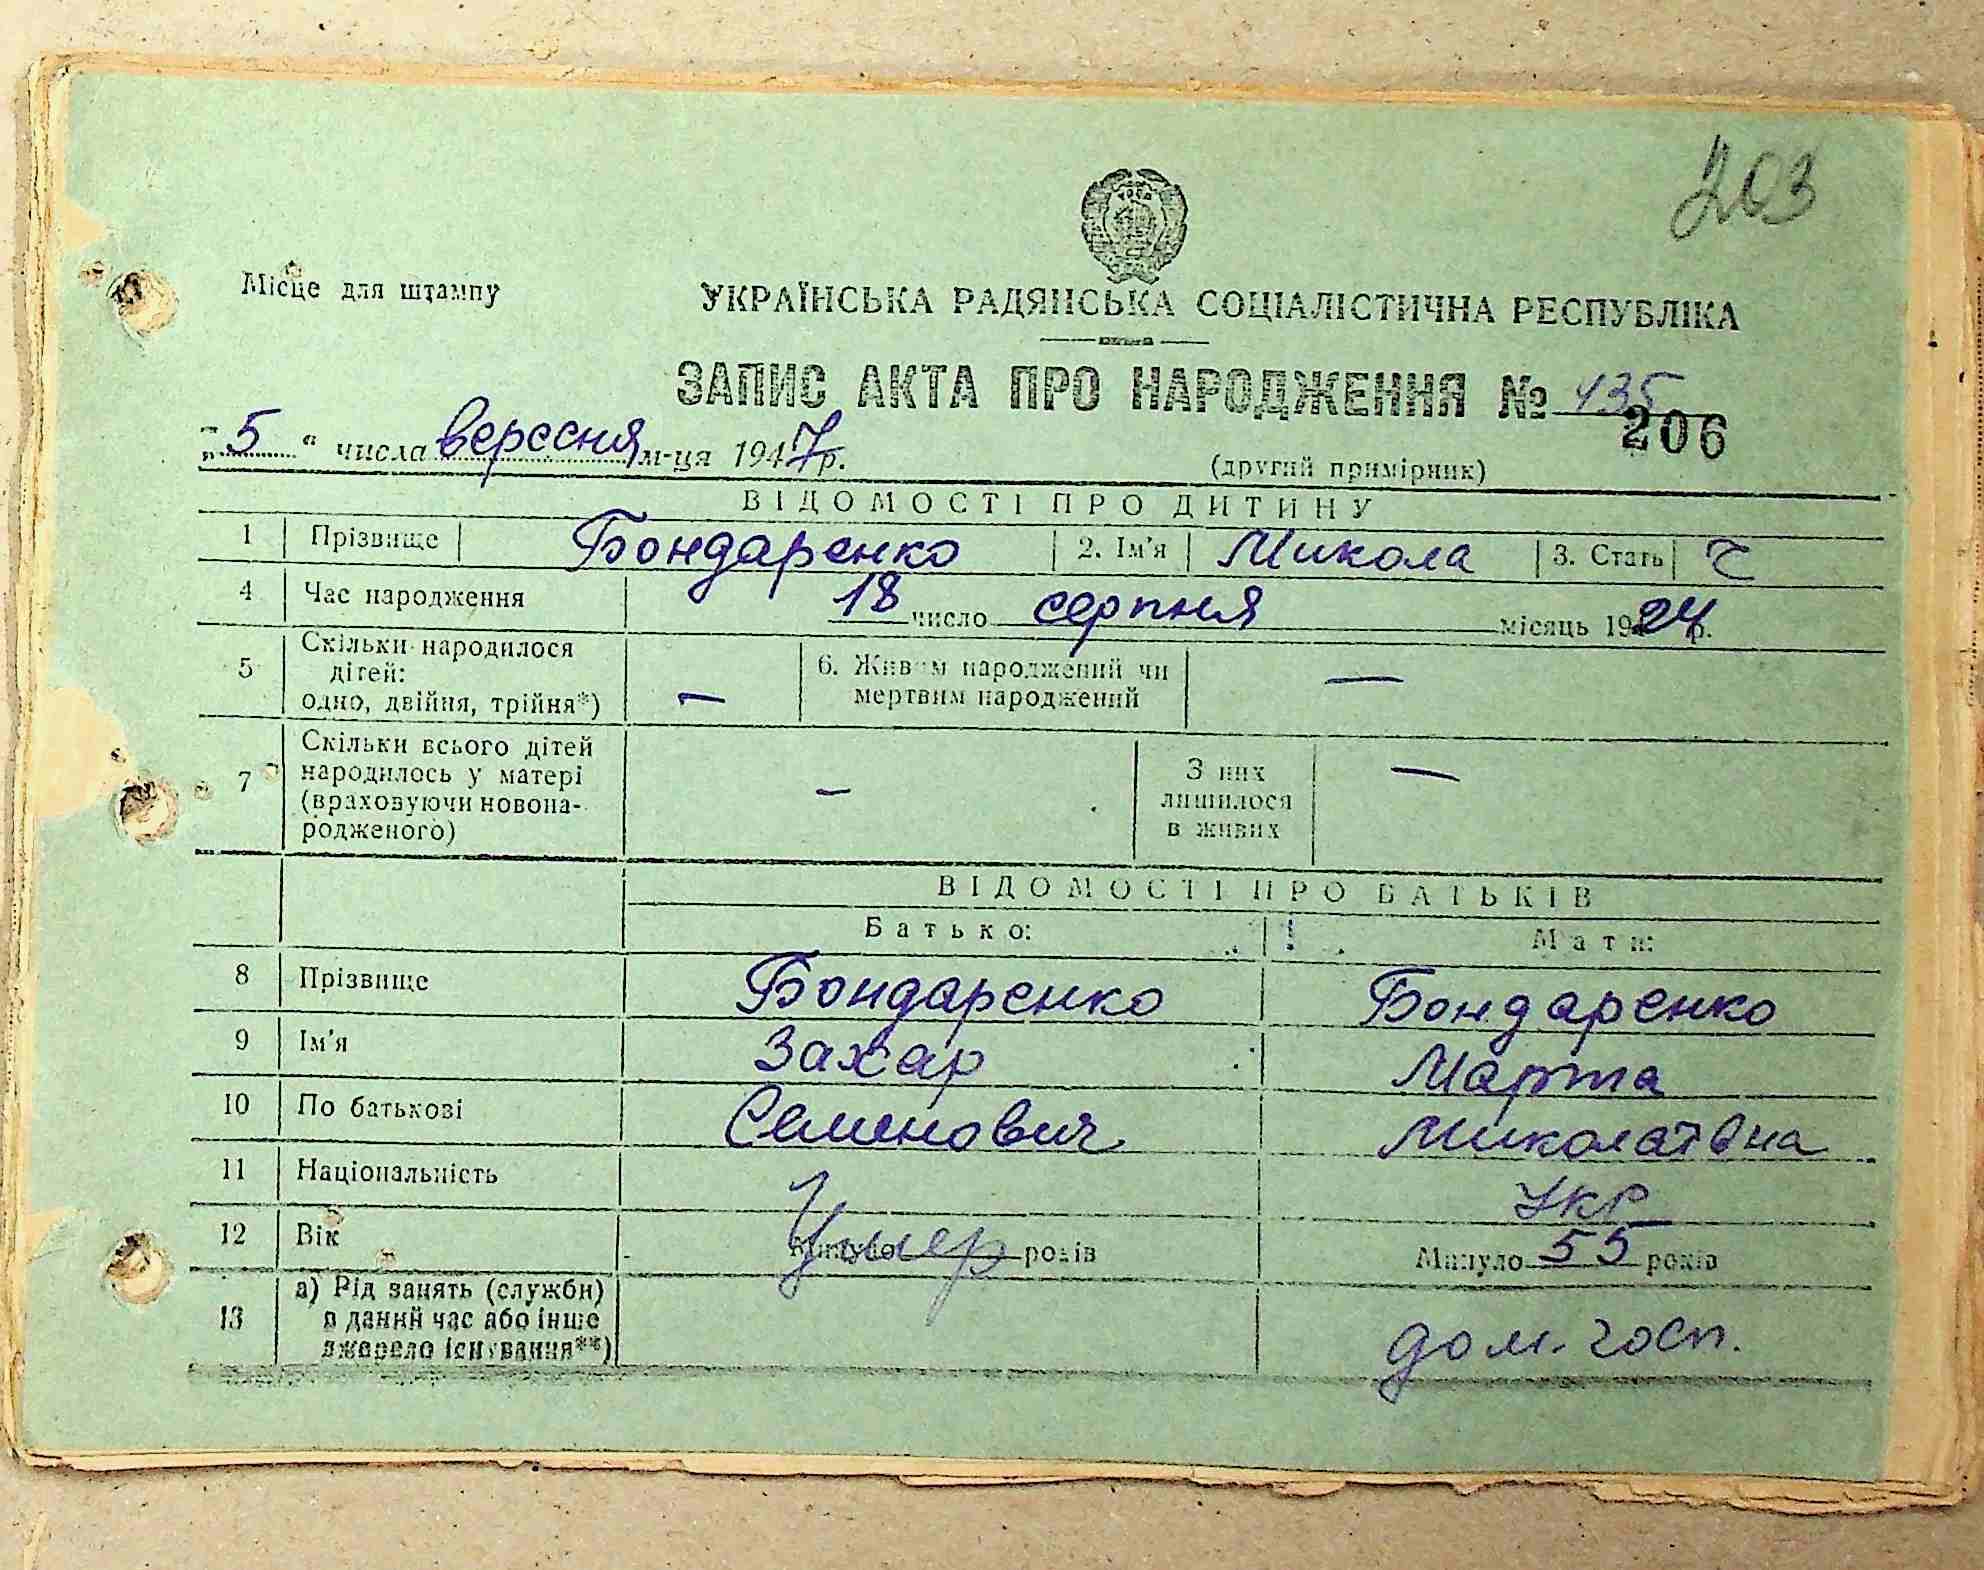 203
Місце для штампу
УКРАЇНСЬКА РАДЯНСЬКА СОЦІАЛІСТИЧНА РЕСПУБЛІКА
ЗАПИС АКТА ПРО НАРОДЖЕННЯ № 435
206
„5“ числа вересня м-ця 1947 р.
(другий примірник)
ВІДОМОСТІ ПРО ДИТИНУ
1 Прізвище Бондаренко 2. Ім'я Микола 3. Стать Ч
4 Час народження 18 число серпня місяць 1924 р.
5 Скільки народилося дітей: одно, двійня, трійня*) — 6. Живим народжений чи мертвим народжений —
7 Скільки всього дітей народилось у матері (враховуючи новонародженого) — З них лишилося в живих —
ВІДОМОСТІ ПРО БАТЬКІВ
Батько: Мати:
8 Прізвище Бондаренко Бондаренко
9 Ім'я Захар Марта
10 По батькові Семенович Миколаївна
11 Національність Укр
12 Вік Минуло Умер років Минуло 55 років
13 а) Рід занять (служби) в даний час або інше джерело існування**) дом. госп.